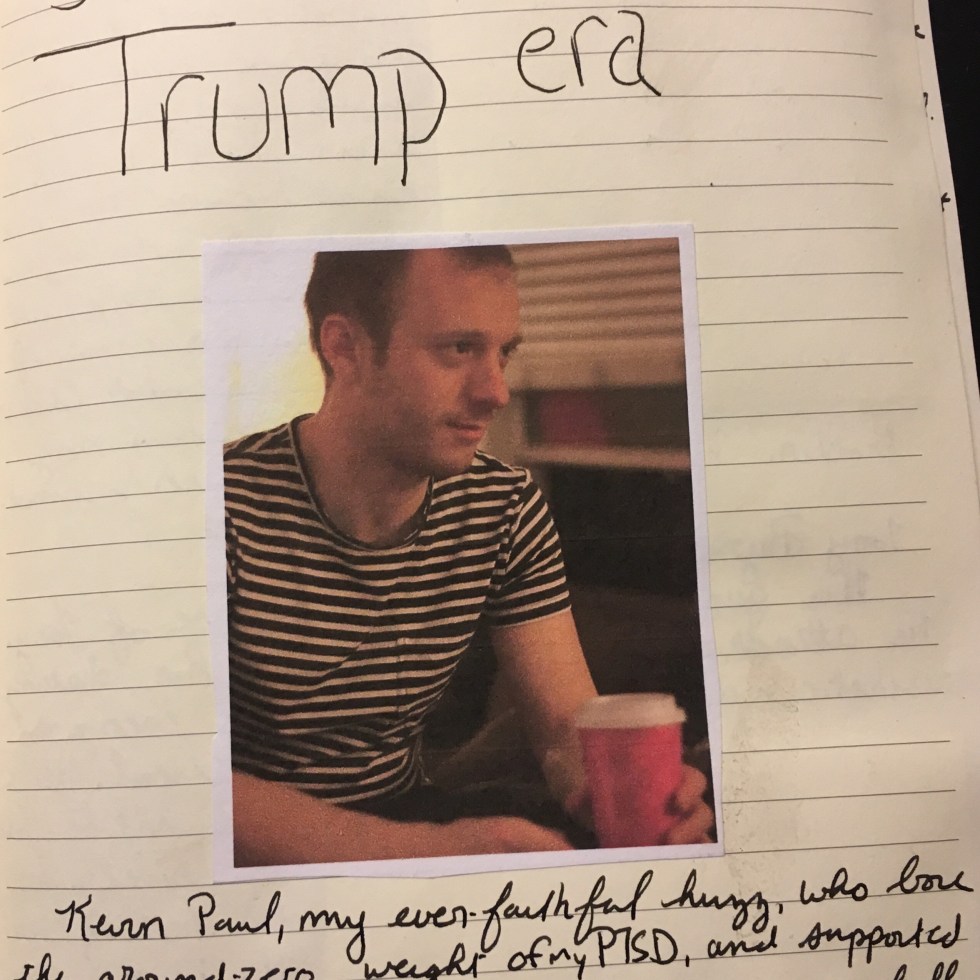 Trump era
Kevin Paul, my ever-faithful huzz, who bore
the ground-zero weight of my PTSD, and supported